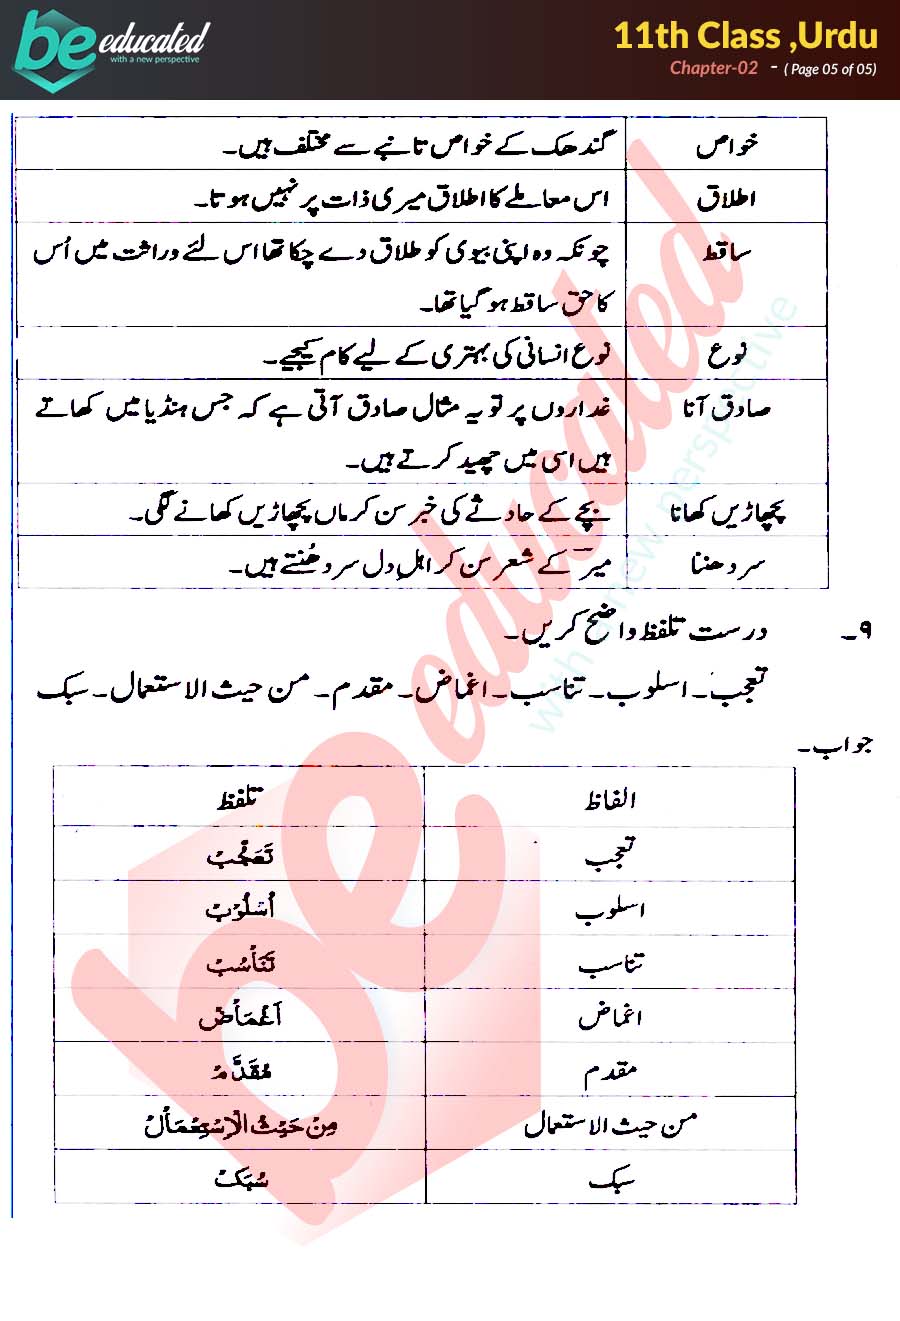 be educated
with a new perspective
11th Class ,Urdu
Chapter-02 - ( Page 05 of 05)
خواص گندھک کے خواص تانبے سے مختلف ہیں۔
اطلاق اس معاملے کا اطلاق میری ذات پر نہیں ہوتا۔
ساقط چونکہ وہ اپنی بیوی کو طلاق دے چکا تھا اس لئے وراثت میں اُس
کا حق ساقط ہو گیا تھا۔
نوع نوع انسانی کی بہتری کے لیے کام کیجیے۔
صادق آنا غداروں پر تو یہ مثال صادق آتی ہے کہ جس ہنڈیا میں کھاتے
ہیں اسی میں چھید کرتے ہیں۔
پچھاڑیں کھانا بچے کے حادثے کی خبر سن کر ماں پچھاڑیں کھانے لگی۔
سر دھننا میر کے شعر سن کر اہلِ دل سر دھُنتے ہیں۔
۹۔ درست تلفظ واضح کریں۔
تعجب۔ اسلوب۔ تناسب۔ اغماض۔ مقدم۔ من حیث الاستعمال۔ سبک
جواب۔
الفاظ تلفظ
تعجب تَعَجُّبْ
اسلوب اُسْلُوْبْ
تناسب تَنَاْسُبْ
اغماض اَغْمَاْضْ
مقدم مُقَدَّمْ
من حیث الاستعمال مِنْ حَیْثُ الْاِسْتِعْمَاْلْ
سبک سُبَکْ
be educated
with a new perspective